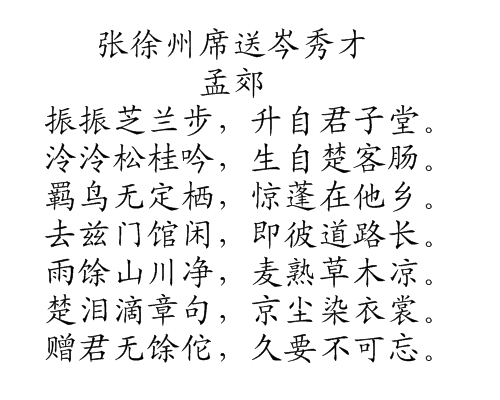 张徐州席送岑秀才
孟郊
振振芝兰步，升自君子堂。
泠泠松桂吟，生自楚客肠。
羁鸟无定栖，惊蓬在他乡。
去兹门馆闲，即彼道路长。
雨馀山川净，麦熟草木凉。
楚泪滴章句，京尘染衣裳。
赠君无馀佗，久要不可忘。